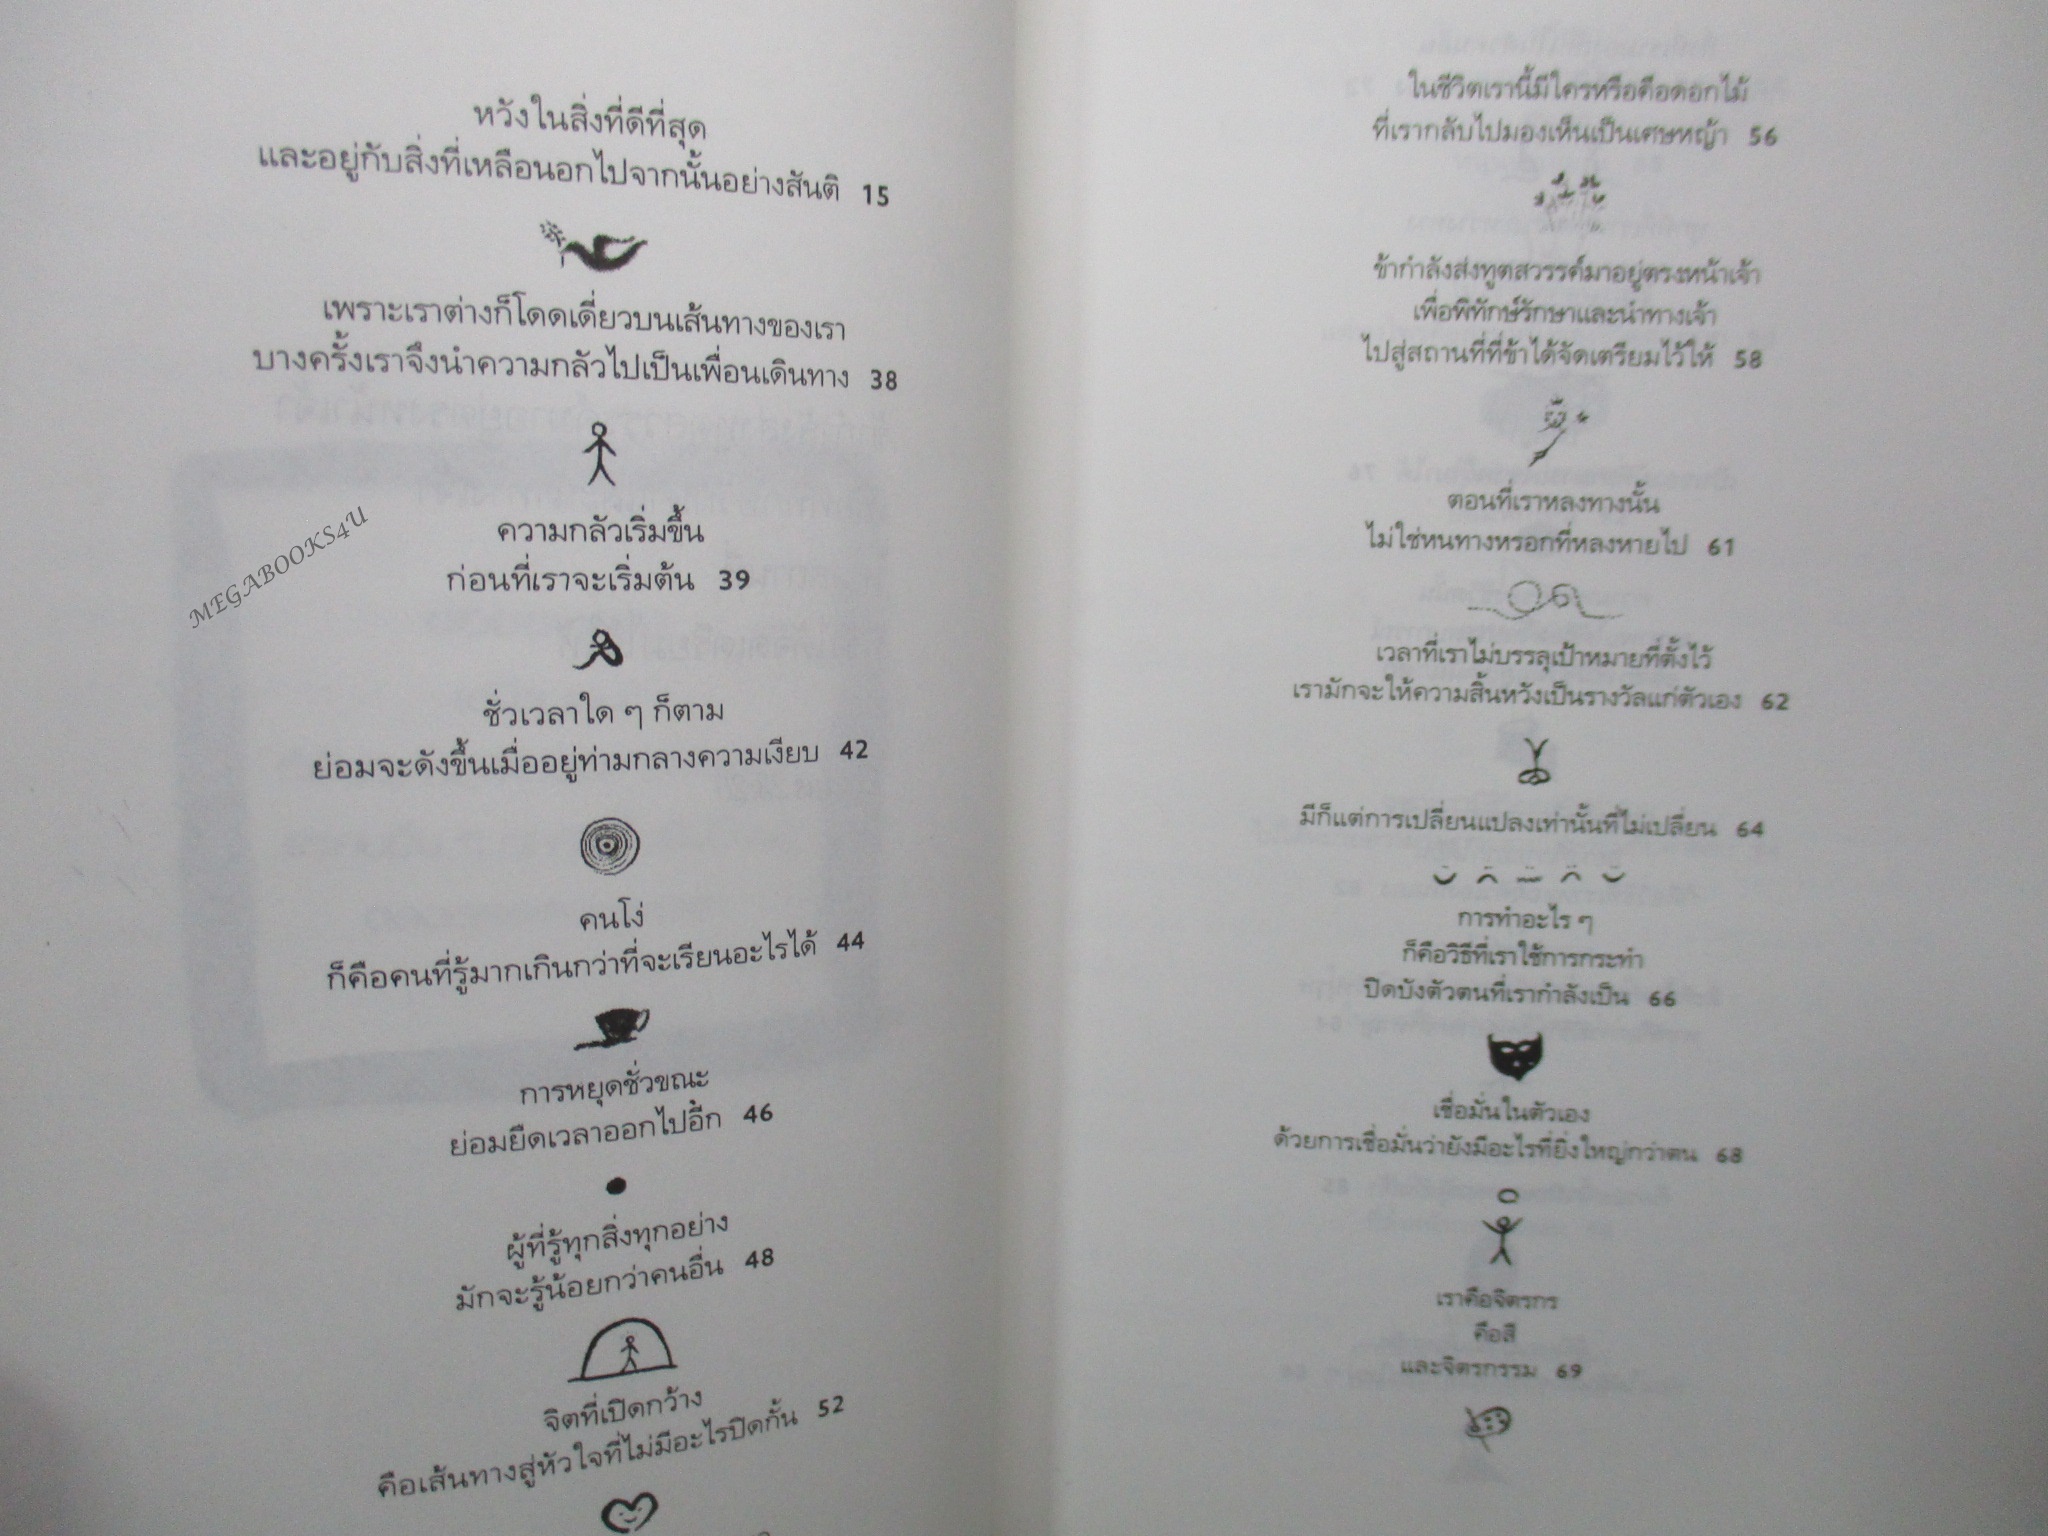 หวังในสิ่งที่ดีที่สุด
และอยู่กับสิ่งที่เหลือนอกไปจากนั้นอย่างสันติ 15
เพราะเราต่างก็โดดเดี่ยวบนเส้นทางของเรา
บางครั้งเราจึงนำความกลัวไปเป็นเพื่อนเดินทาง 38
ความกลัวเริ่มขึ้น
ก่อนที่เราจะเริ่มต้น 39
MEGABOOKS4U
ชั่วเวลาใด ๆ ก็ตาม
ย่อมจะดังขึ้นเมื่ออยู่ท่ามกลางความเงียบ 42
คนโง่
ก็คือคนที่รู้มากเกินกว่าที่จะเรียนอะไรได้ 44
การหยุดชั่วขณะ
ย่อมยืดเวลาออกไปอีก 46
ผู้ที่รู้ทุกสิ่งทุกอย่าง
มักจะรู้น้อยกว่าคนอื่น 48
จิตที่เปิดกว้าง
คือเส้นทางสู่หัวใจที่ไม่มีอะไรปิดกั้น 52
ในชีวิตเรานี้มีใครหรือคือดอกไม้
ที่เรากลับไปมองเห็นเป็นเศษหญ้า 56
ข้ากำลังส่งทูตสวรรค์มาอยู่ตรงหน้าเจ้า
เพื่อพิทักษ์รักษาและนำทางเจ้า
ไปสู่สถานที่ที่ข้าได้จัดเตรียมไว้ให้ 58
ตอนที่เราหลงทางนั้น
ไม่ใช่หนทางหรอกที่หลงหายไป 61
เวลาที่เราไม่บรรลุเป้าหมายที่ตั้งไว้
เรามักจะให้ความสิ้นหวังเป็นรางวัลแก่ตัวเอง 62
มีก็แต่การเปลี่ยนแปลงเท่านั้นที่ไม่เปลี่ยน 64
การทำอะไร ๆ
ก็คือวิธีที่เราใช้การกระทำ
ปิดบังตัวตนที่เรากำลังเป็น 66
เชื่อมั่นในตัวเอง
ด้วยการเชื่อมั่นว่ายังมีอะไรที่ยิ่งใหญ่กว่าตน 68
เราคือจิตรกร
คือสี
และจิตรกรรม 69